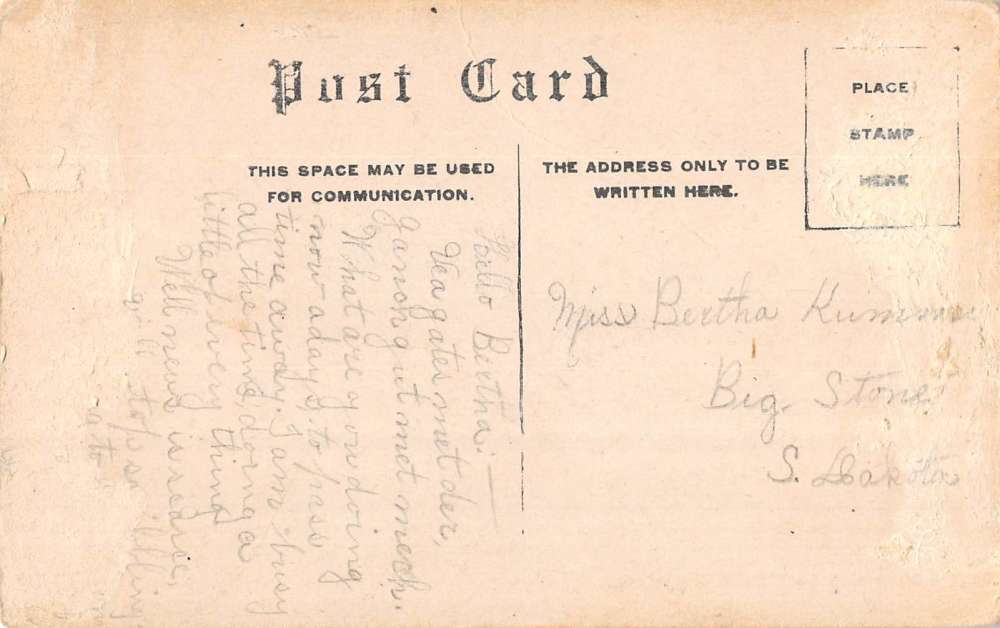 Post Card
THIS SPACE MAY BE USED
FOR COMMUNICATION.
THE ADDRESS ONLY TO BE
WRITTEN HERE.
PLACE
STAMP
HERE
Hello Bertha:—
Vea gates met der,
Ja noch gut met mech.
What are you doing
now adays, to pass
time away. I am busy
all the time doing a
little of every thing
Well news is scarce,
will stop
Miss Bertha
Big Stone
S. Dakota